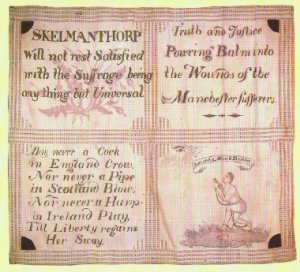 SKELMANTHORP
Will not rest Satisfied
with the Suffrage being
any thing but Universal
Truth and Justice
Powring Balm into
the Wounds of the
Manchester Sufferers
May never a Cock
in England Crow,
Nor never a Pipe
in Scotland Blow,
Nor never a Harp
in Ireland Play,
Till Liberty regains
Her Sway.
Am not a Man & Brother